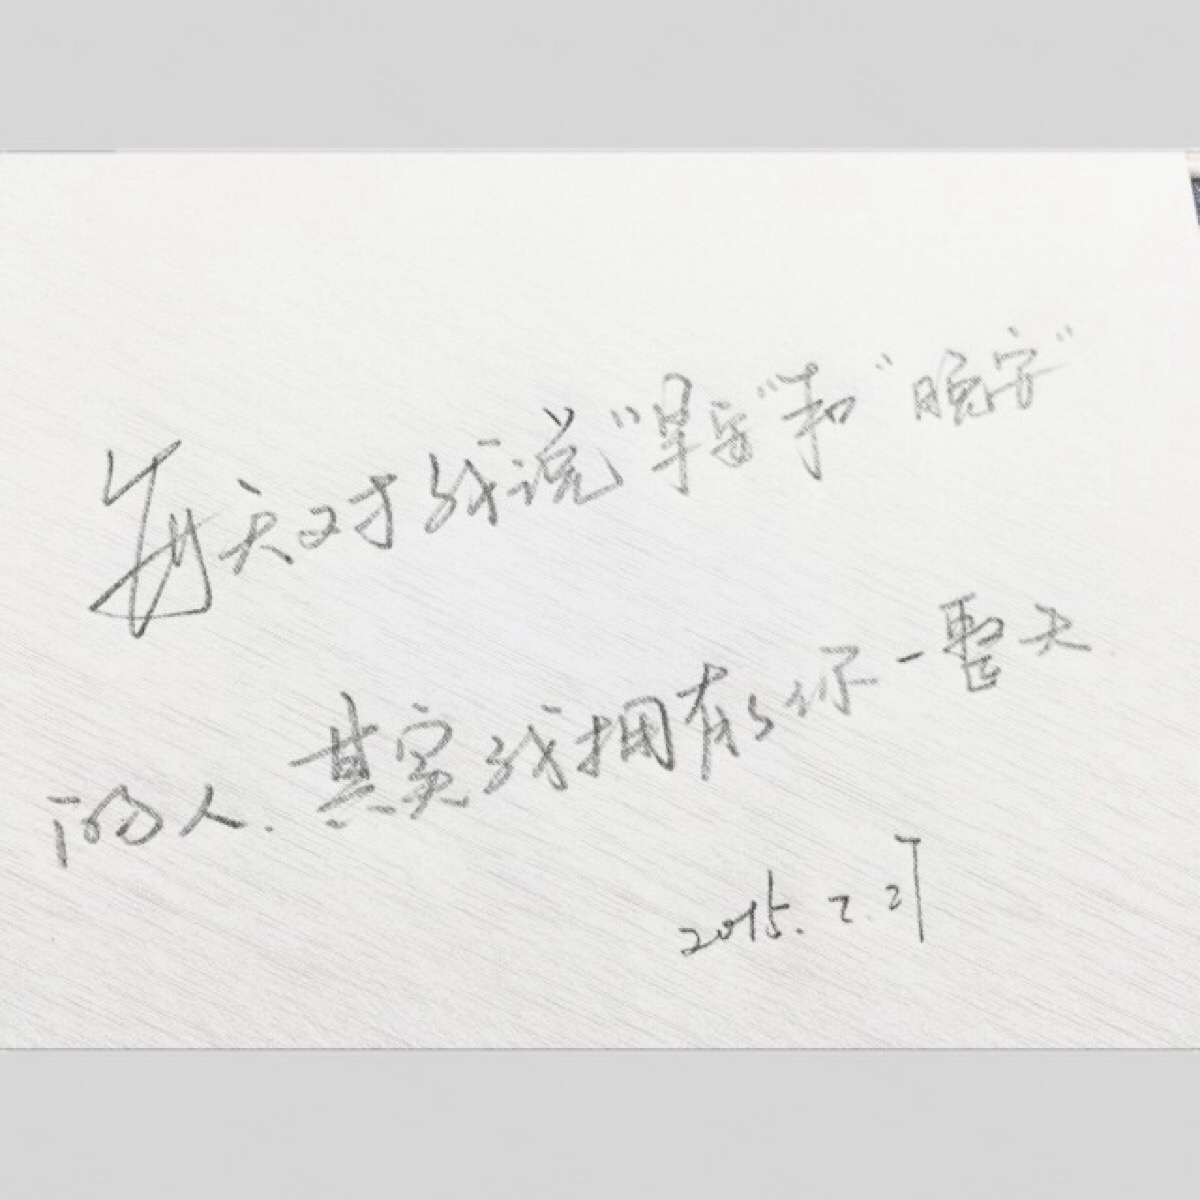 每天对我说"早安"和"晚安"
的人.其实我拥有的你一整天
2015.2.27